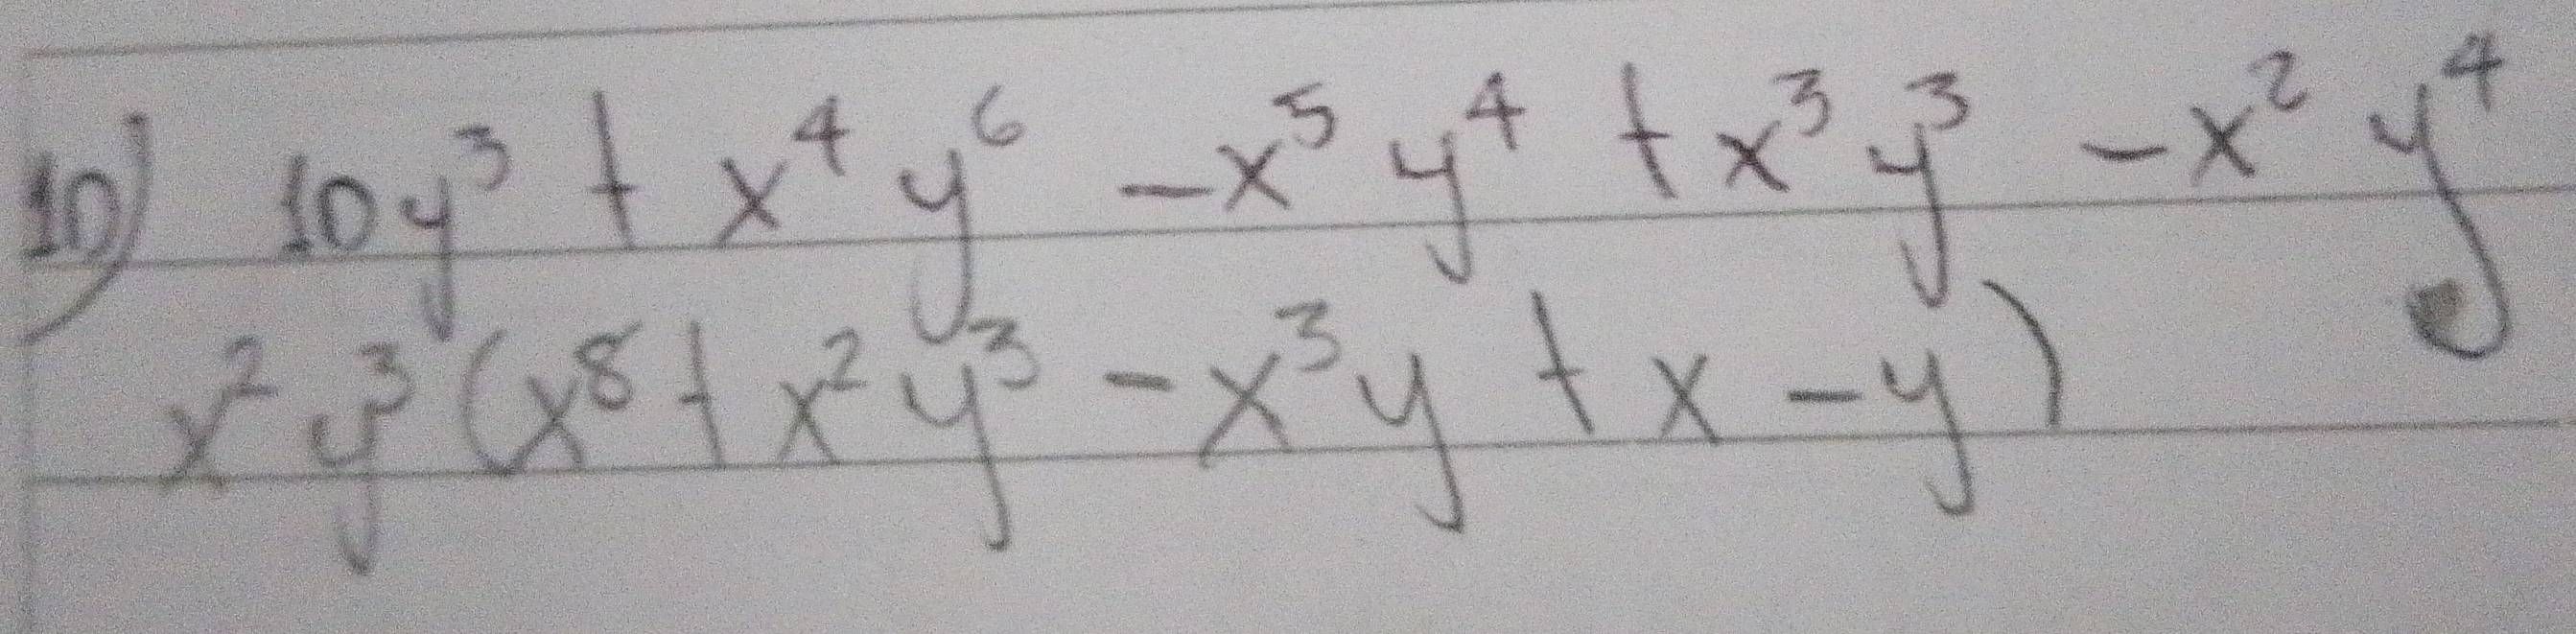 10) 10y³ + x⁴y⁶ - x⁵y⁴ + x³y³ - x²y⁴
x²y³(x⁸ + x²y³ - x³y + x - y)